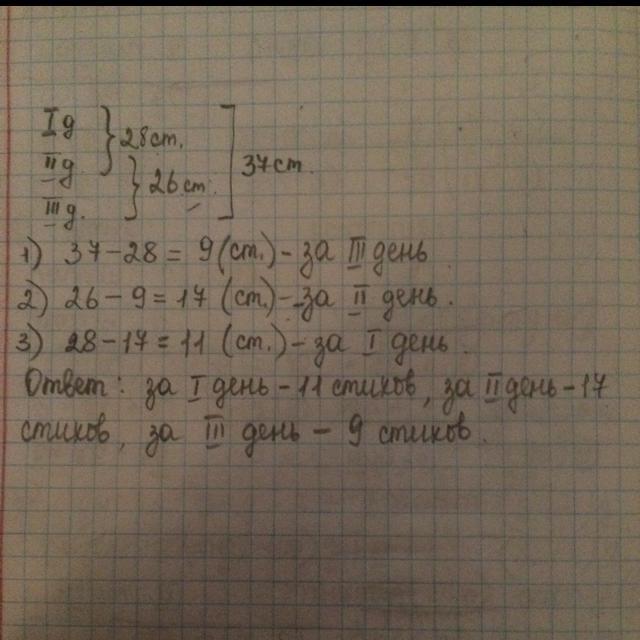 I д } 28 ст. ] 37 ст.
II д. } 26 ст.
III д.
1) 37 - 28 = 9 (ст.) - за III день
2) 26 - 9 = 17 (ст.) - за II день.
3) 28 - 17 = 11 (ст.) - за I день.
Ответ: за I день - 11 стихов, за II день - 17
стихов, за III день - 9 стихов.